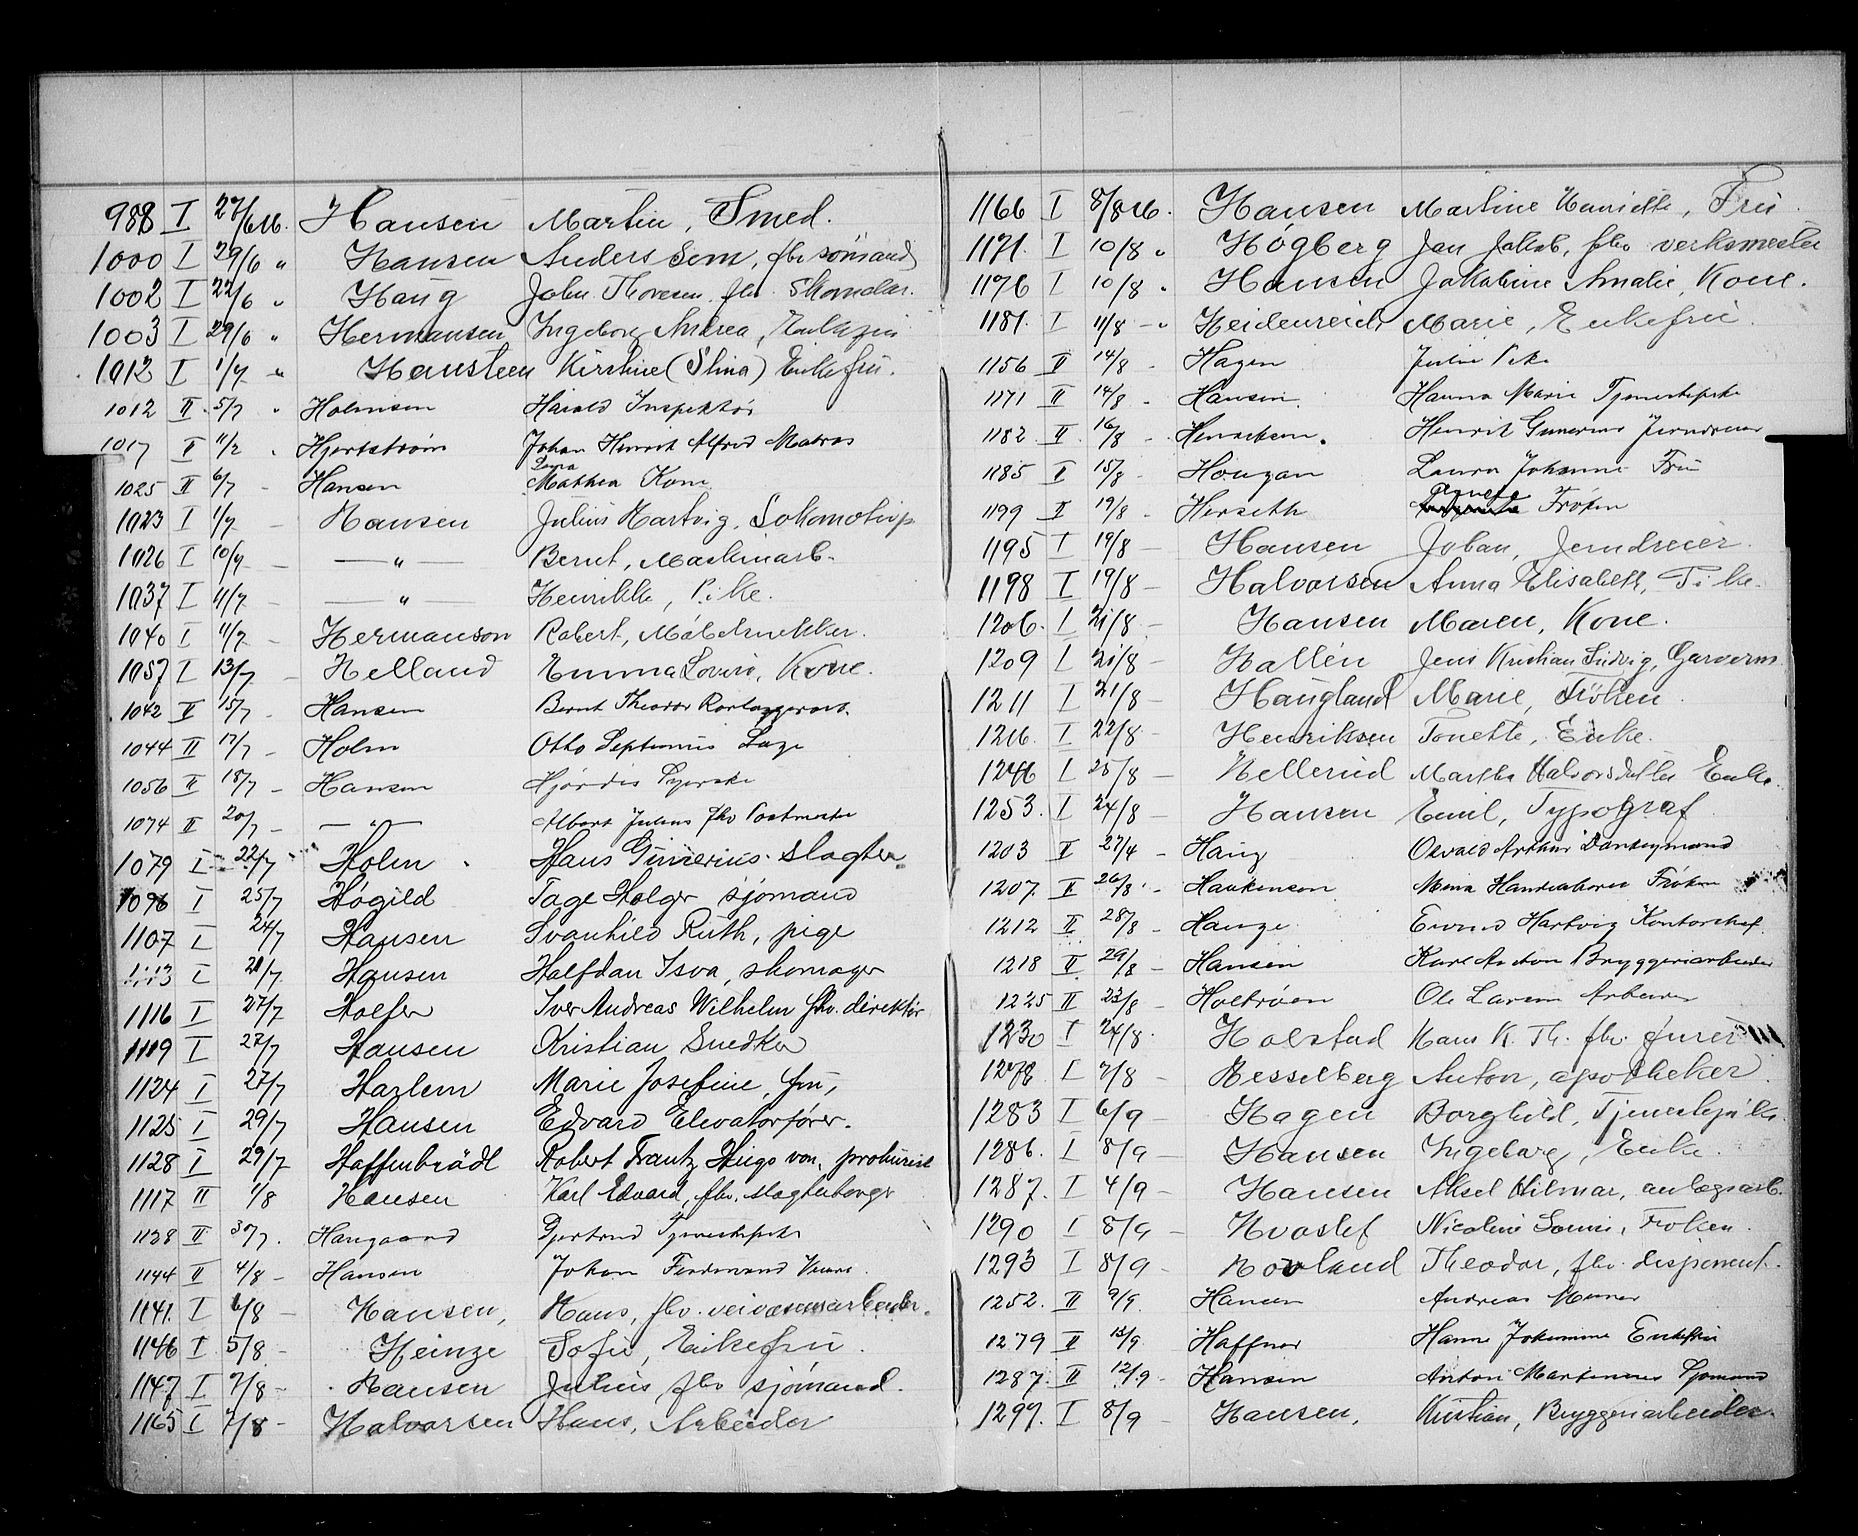 988 I 27/6 16. Hansen Martin, Smed.
1000 I 29/6 " Hansen Anders Sem, fhv sömand
1002 I 22/6 " Haug John Thoresen fhv. Skomak.
1003 I 29/6 " Hermansen Ingeborg Andrea, Enkefru
1012 I 1/7 " Hansteen Kirstine (Stina) Enkefru.
1012 II 5/7 " Holmsen Harald Inspektör
1017 II 11/2 " Hjertström Johan Henrik Alfred Matros
1025 II 6/7 - Hansen Mathea Kone
1023 I 1/7 - Hansen Julius Hartvig, Lokomotivp
1026 I 10/7 - — " — Bernt, Maskinarb.
1037 I 11/7 - — " — Henrikke, Pike.
1040 I 11/7 - Hermanson Robert, Möbelsnekker.
1057 I 13/7 - Helland Emma Lovise, Kone.
1042 II 15/7 - Hansen Bernt Theodor
1044 II 17/7 - Holm Otto Septimus
1056 II 18/7 - Hansen Hjördis Syerske
1074 II 20/7 - — " — Albert Julius fhv Postmester
1079 I 22/7 Holm Hans Gunerius. Slagter
1096 I 25/7 Høgild Tage Holger sjømand
1107 I 24/7 Hansen Svanhild Ruth, pige
1113 I 21/7 Hansen Halfdan Isva, skomager
1116 I 27/7 Holfer Iver Andreas Wilhelm fhv. direktör
1119 I 27/7 Hansen Kristian Snedker
1124 I 27/7 Harlem Marie Josefine, fru,
1125 I 29/7 Hansen Edvard Elevatorfører.
1128 I 29/7 Haffenbrädl Robert Frantz Hugo von, prokurist
1117 II 1/8 Hansen Karl Edvard, fhv. slagterborger
1128 II 30/7. Haugaard Gjertrud Tjenestepike
1144 II 4/8 - Hansen Johan Ferdinand
1141. I 6/8 - Hansen, Hans, fhv. veivæsensarbeider.
1146 I 5/8 - Heinze Sofie, Enkefru.
1147 I 7/8 - Hansen Julius fhv sjømand.
1165 I 7/8 - Halvorsen Hans, Arbeider
1166 I 8/8 16. Hansen Martine Henriette, Fru.
1171. I 10/8 " Högberg Jan Jakob, fhv verksmester
1176 I 10/8 " Hansen Jakobine Amalie, Kone.
1181. I 11/8 - " Heidenreich Marie, Enkefru.
1156 II 14/8 - Hagen Julie Pike
1171 II 14/8 - Hansen. Hanna Marie Tjenestepike
1182 II 16/8 - Henriksen. Henrik Gunerius Jerndreier
1185 II 15/8 - Hougan Laura Johanne Fru
1199 II 19/8 - Herseth Agnete Fröken
1195 I 19/8 - Hansen Johan, Jerndreier.
1198 I 19/8 - Halvorsen Anna Elisabeth, Pike.
1206. I 21/8 - Hansen Maren, Kone.
1209 I 21/8 - Hallén Jens Kristian Ludvig, Garverm
1211 I 21/8 - Haugland Marie, Fröken.
1216. I 22/8 - Henriksen Tonette, Enke.
1246 I 25/8 - Hellerud Martha Halvorsdatter Enke.
1253. I 24/8 - Hansen Emil, Typograf
1203 II 27/4 - Haug Osvald Arthur
1207. II 26/8 - Haakensen Mina Fröken
1212 II 28/8 - Hauge Hartvig Kontorchef
1218 II 29/8 - Hansen Karl Anton Bryggeriarbeider
1225 II 23/8 - Holtröen Ole Larsen Arbeider
1230 I 24/8. Holstad Hans K. Th. fhv.
1278 I 7/8 - Hesselberg Anton, apotheker.
1283 I 6/9 - Hagen Borghild, Tjenestepike.
1286. I 8/9 - Hansen Ingeborg, Enke.
1287. I 4/9 - Hansen Aksel Hilmar, anlægsarb.
1290 I 8/9 - Hvoslef Nicoline Louise, Froken.
1293 I 8/9 - Hovland Theodor, fhv. disponent.
1252. II 9/9. Hansen Andreas Murer
1279 II 15/9 Haffner Hanne Jokumine Enkefru
1287. II 12/9 - Hansen Anton Martinius Sjømand
1297. I 8/9 - Hansen, Kristian, Bryggeriarbeider.